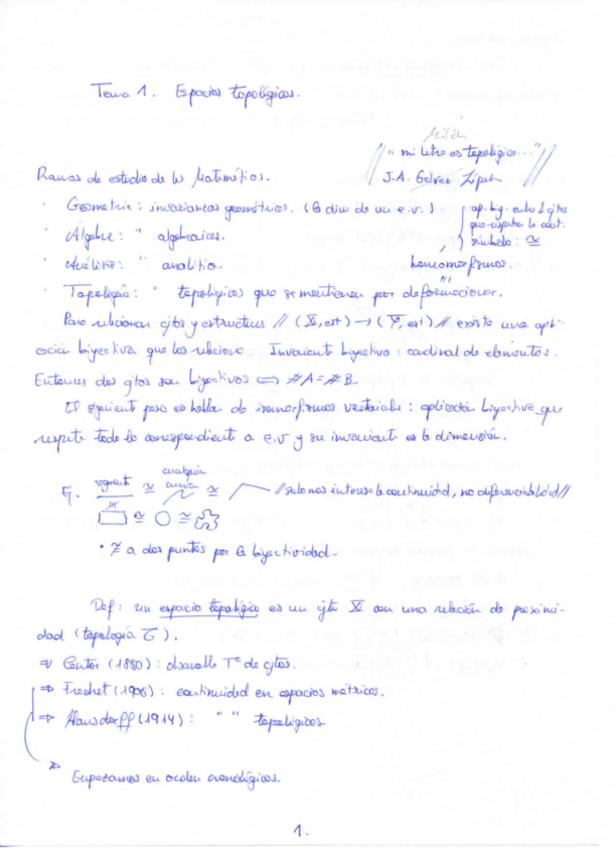 Tema 1. Espacios topológicos.
Milán
// "mi letra es topológica..." //
J.A. Gálvez López
Ramas de estudio de las Matemáticas.
· Geometría: invariantes geométricos. (la dim de un e.v.)
ap. biy. entre 2 cjtos
que respetan la cont.
símbolo: ≅
· Álgebra: " algebraicos.
· Análisis: " analítico
homeomorfismos.
· Topología: " topológicos que se mantienen por deformaciones.
Para relacionar cjtos y estructuras // (X, est) → (Y, est) // existe una apli-
cación biyectiva que los relaciona. Invariante biyectivo: cardinal de elementos.
Entonces dos cjtos son biyectivos ⟺ #A = #B.
El siguiente paso es hablar de isomorfismos vectoriales: aplicación biyectiva que
respete todo lo correspondiente a e.v y su invariante es la dimensión.
Ej. segmento ≅ cualquier curva ≅ // solo nos interesa la continuidad, no diferenciabilidad //
≅ ≅
· ≇ a dos puntos por la biyectividad.
Def: un espacio topológico es un cjto X con una relación de proximi-
dad (topología τ).
⇒ Cantor (1880): desarrolla Tª de cjtos.
⇒ Frechet (1906): continuidad en espacios métricos.
⇒ Hausdorff (1914): " " topológicos
Empezamos en orden cronológicos.
1.